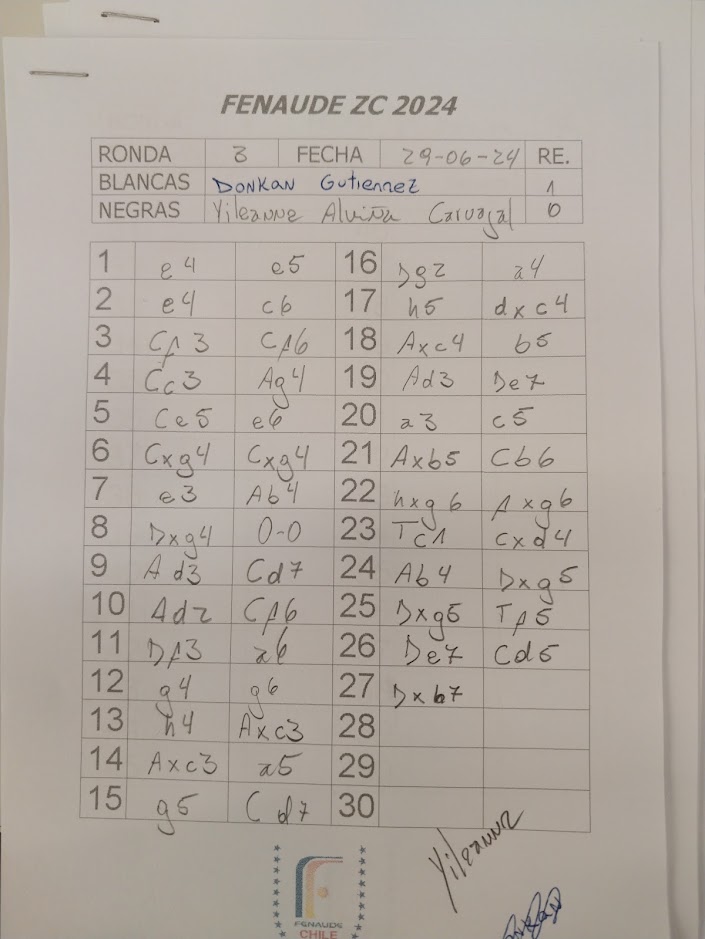 FENAUDE ZC 2024
RONDA 3 FECHA 29-06-24 RE.
BLANCAS Donkan Gutierrez 1
NEGRAS Yileanne Alviña Carvajal 0
1 e4 e5 16 Dg2 a4
2 e4 c6 17 h5 dxc4
3 Cf3 Cf6 18 Axc4 b5
4 Cc3 Ag4 19 Ad3 De7
5 Ce5 e6 20 a3 c5
6 Cxg4 Cxg4 21 Axb5 Cb6
7 e3 Ab4 22 hxg6 Axg6
8 Dxg4 0-0 23 Tc1 cxd4
9 Ad3 Cd7 24 Ab4 Dxg5
10 Ad2 Cf6 25 Dxg5 Tf5
11 Df3 a6 26 De7 Cd5
12 g4 g6 27 Dxb7
13 h4 Axc3 28
14 Axc3 a5 29
15 g5 Cd7 30
Yileanne
FENAUDE
CHILE